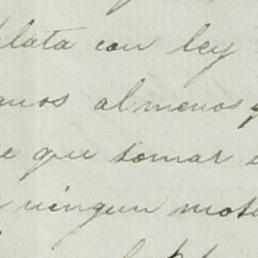 plata con ley
anos almenos q
e que tomar
ningun mot